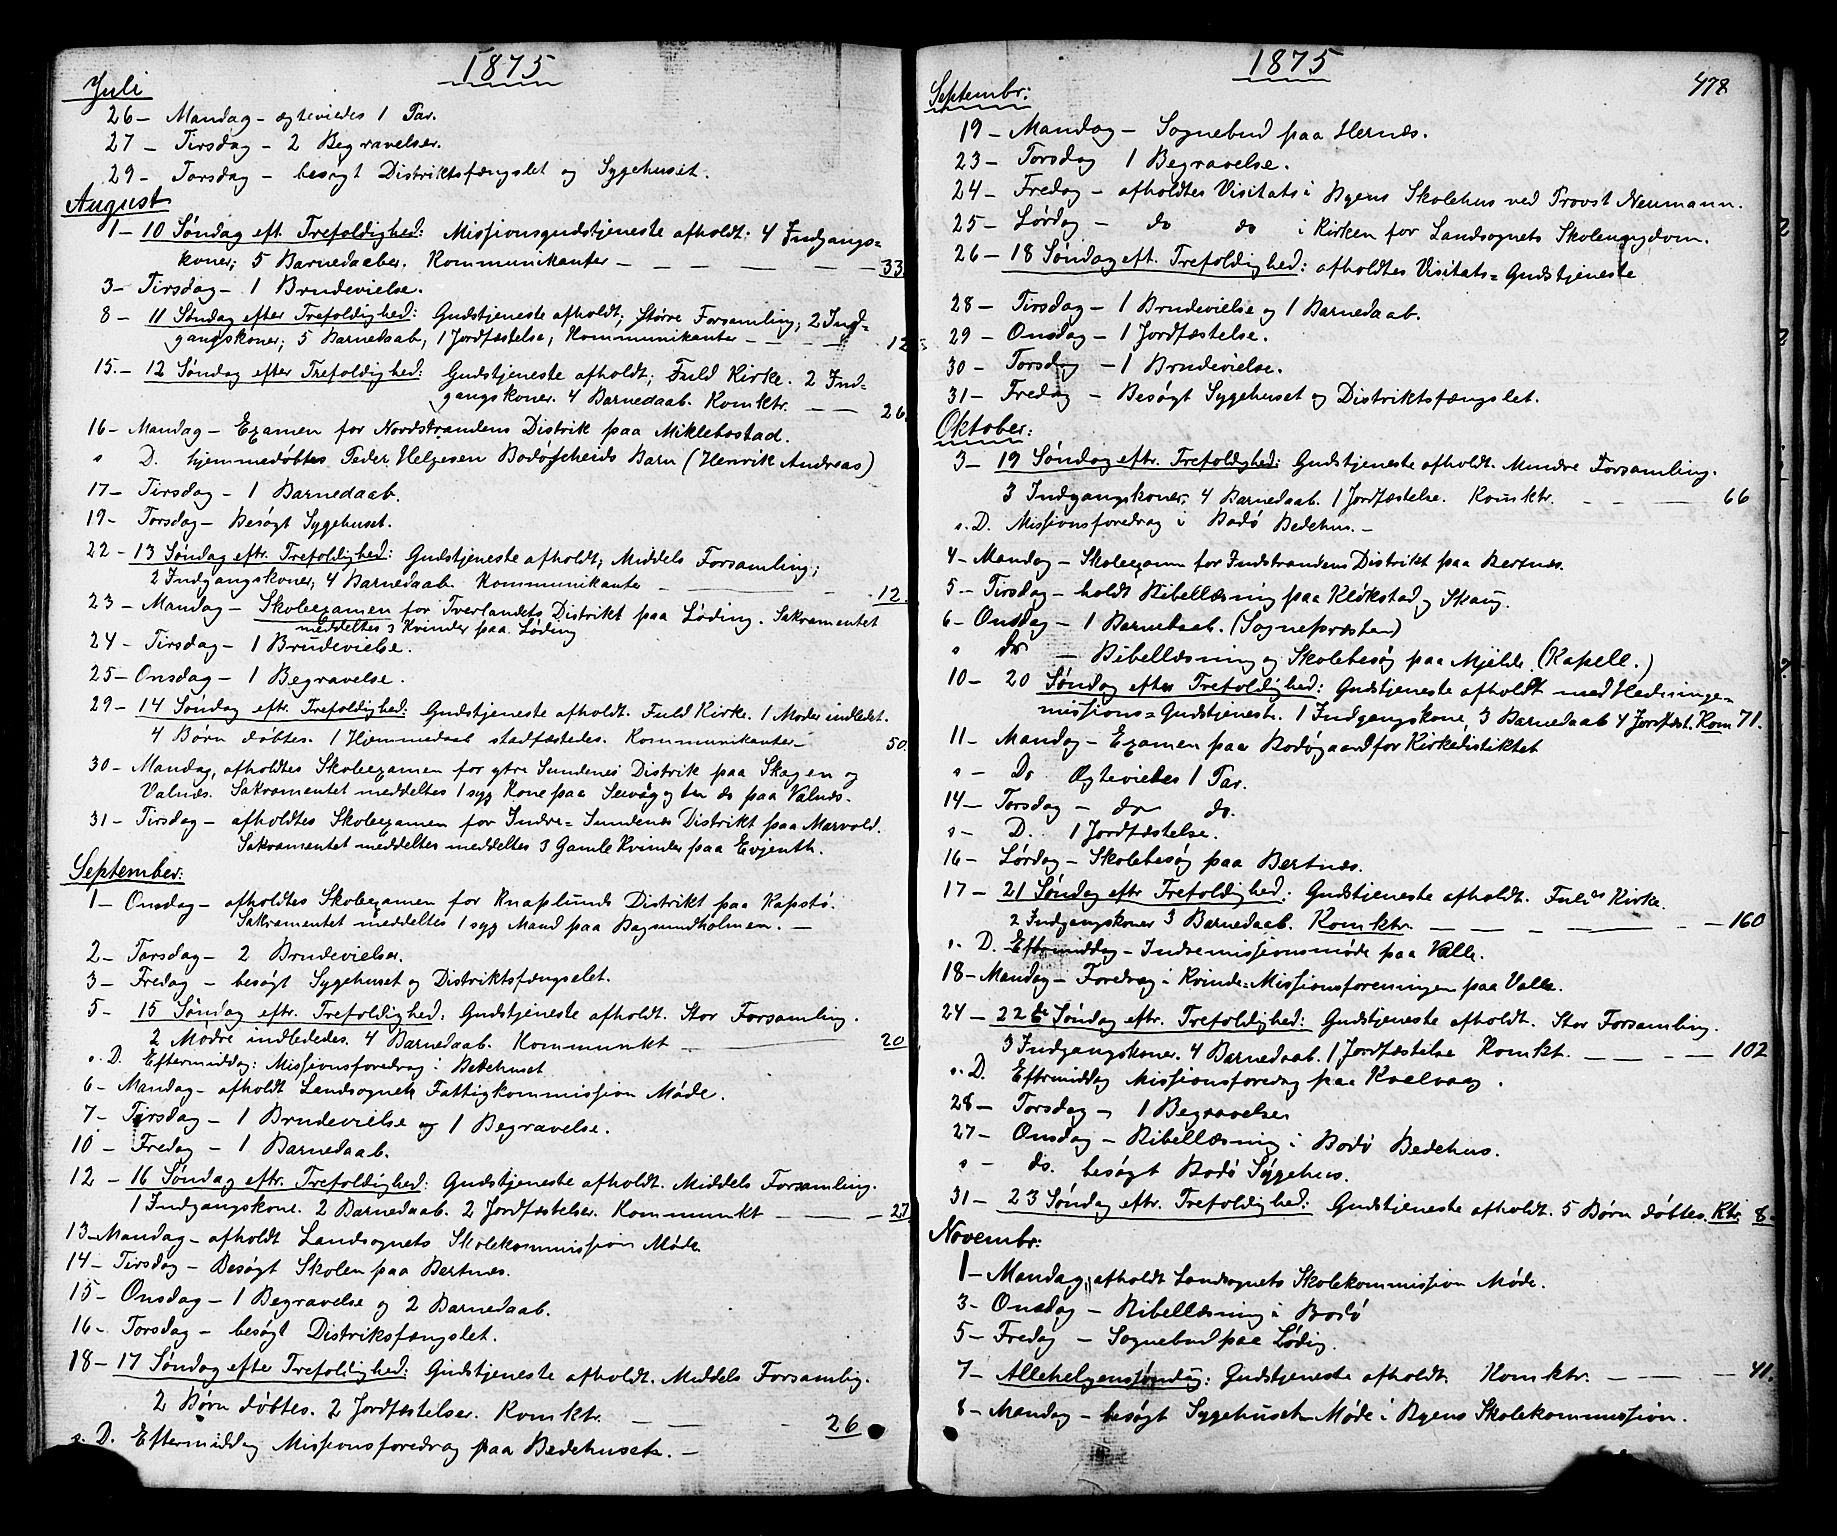 1875
Juli
26 – Mandag – ægteviedes 1 Par.
27 – Tirsdag – 2 Begravelser.
29 – Torsdag – besøgt Distriktsfængslet og Sygehuset.
August
1 – 10 Søndag eft. Trefoldighed: Missionsgudstjeneste afholdt; 4 Indgangs=
koner; 5 Barnedaaber. Kommunikanter – – – – – – 33
3 – Tirsdag – 1 Brudevielse.
8 – 11 Søndag efter Trefoldighed: Gudstjeneste afholdt; Større Forsamling; 2 Ind=
gangskoner; 5 Barnedaab, 1 Jordfæstelse, Kommunikanter – – – – 12
15. – 12 Søndag efter Trefoldighed: Gudstjeneste afholdt; Fuld Kirke. 2 Ind=
gangskoner. 4 Barnedaab. Komktr. – – 26
16 – Mandag – Examen for Nordstrandens Distrik paa Miklebostad.
s D. hjemmedøbtes Peder Helgesen Bodøscheids Barn (Henrik Andreas)
17 – Tirsdag – 1 Barnedaab.
19 – Torsdag – Besøgt Sygehuset.
22 – 13 Søndag eftr. Trefoldighed: Gudstjeneste afholdt; Middels Forsamling;
2 Indgangskoner; 4 Barnedaab. Kommunikanter – – – – 12.
23 – Mandag – Skoleexamen for Tverlandets Distrikt paa Løding. Sakramentet
meddeltes 3 Kvinder paa Løding
24 – Tirsdag – 1 Brudevielse.
25 – Onsdag – 1 Begravelse.
29 – 14 Søndag eftr. Trefoldighed: Gudstjeneste afholdt. Fuld Kirke. 1 Moder indledet.
4 Børn døbtes. 1 Hjemmedaab stadfæstedes. Kommunikanter – 50.
30 – Mandag, afholdtes Skoleexamen for ytre Sundenes Distrik paa Skagen og
Valnæs. Sakramentet meddeltes 1 syg Kone paa Seivåg og do paa Valnæs.
31 – Tirsdag – afholdtes Skoleexamen for Indre = Sundenes Distrikt paa Marvold.
Sakramentet meddeltes meddeltes 3 Gamle Kvinder paa Evjenth.
September:
1 – Onsdag – afholdtes Skolexamen for Knaplunds Distrikt paa Kapstø.
Sakramentet meddeltes 1 syg Mand paa Bagsundholmen. –
2 – Torsdag – 2 Brudevielser.
3 – Fredag – besøgt Sygehuset og Distriktsfængselet.
5 – 15 Søndag eftr. Trefoldighed: Gudstjeneste afholdt. Stor Forsamling.
2 Mødre indlededes. 4 Barnedaab. Kommunkt – 20
s. D. Eftermiddag: Missionsforedrag i Bedehuset
6 – Mandag – afholdt Landsognets Fattigkommission Møde.
7 – Tirsdag – 1 Brudevielse og 1 Begravelse.
10 – Fredag – 1 Barnedaab.
12 – 16 Søndag eftr. Trefoldighed: Gudstjeneste afholdt. Middels Forsamling.
1 Indgangskone. 2 Barnedaab. 2 Jordfæstelser. Kommunkt – – – 27
13 – Mandag – afholdt Landsognets Skolekommission Møde.
14 – Tirsdag – Besøgt Skolen paa Bertnæs.
15 – Onsdag – 1 Begravelse og 2 Barnedaab.
16 – Torsdag – besøgt Distriksfængslet.
18 – 17 Søndag efter Trefoldighed: Gudstjeneste afholdt. Middels Forsamlig.
2 Børn døbtes. 2 Jordfæstelser. Komktr. – – – 26
s. D. Eftermiddag Missionsforedrag paa Bedehuset. –
1875
478
Septembr:
19 – Mandag – Sognebud paa Hernæs.
23 – Torsdag 1 Begravelse.
24 – Fredag – afholdtes Visitats i Byens Skolehus ved Provst Neumann.
25 – Lørdag – do do i Kirken for Landsognets Skoleungdom.
26 – 18 Søndag eft. Trefoldighed: afholdtes Visitats = Gudstjeneste
28 – Tirsdag – 1 Brudevielse og 1 Barnedaab.
29 – Onsdag – 1 Jordfæstelse.
30 – Torsdag – 1 Brudevielse.
31 – Fredag – Besøgt Sygehuset og Distriktsfængslet.
Oktober:
3 – 19 Søndag eftr. Trefoldighed: Gudstjeneste afholdt. Mindre Forsamling.
3 Indgangskoner, 4 Barnedaab. 1 Jordfæstelse. Komktr. – – – 66
s. D. Missionsforedrag i Bodø Bedehus. –
4 – Mandag – Skoleexamen for Indstrandens Distrikt paa Bertnæs.
5 – Tirsdag – holdt Bibellæsning paa Kløkstad og Skaug.
6 – Onsdag – 1 Barnedaab. (Sognepræsten)
s do – Bibellæsning og Skolebesøg paa Mjelde (Kapell.)
10 – 20 Søndag efter Trefoldighed: Gudstjeneste afholdt med Hedninge=
missions = Gudstjeneste. 1 Indgangskone, 3 Barnedaab 4 Jordfæst. Kom 71.
11 – Mandag – Examen paa Bodøgaard for Kirkedistiktet
s – Do Ægteviedes 1 Par.
14 – Torsdag – do do.
s – D. 1 Jordfæstelse.
16 – Lørdag – Skolebesøg paa Bertnæs.
17 – 21 Søndag eftr Trefoldighed: Gudstjeneste afholdt. Fuld Kirke.
2 Indgangskoner 3 Barnedaab. Komktr. – – – – 160
s. D. Eftermiddag – Indremissionsmøde paa Valle.
18 – Mandag – Foredrag i Kvinde = Missionsforeningen paa Valle.
24 – 22de Søndag eftr. Trefoldighed: Gudstjeneste afholdt. Stor Forsamling.
3 Indgangskoner. 4 Barnedaab. 1 Jordfæstelse Komkt. – – – – 102
s. D. Eftrmiddag Missionsforedag paa Kvelvaag.
28 – Torsdag – 1 Begravelse
27 – Onsdag – Bibellæsning i Bodø Bedehus.
s – do. besøgt Bodø Sygehus.
31 – 23 Søndag eftr. Trefoldighed: Gudstjeneste afholdt. 5 Børn døbtes. Ktr 8 –
Novembr:
1 – Mandag, afholdt Landsognets Skolekommission Møde.
3 – Onsdag – Bibellæsning i Bodø
5 – Fredag – Sognebud paa Lødig.
7 – Allehelgenssøndag: Gudstjeneste afholdt. Komktr. – – – 41.
8 – Mandag – besøgt Sygehuset – Møde i Byens Skolekommission.